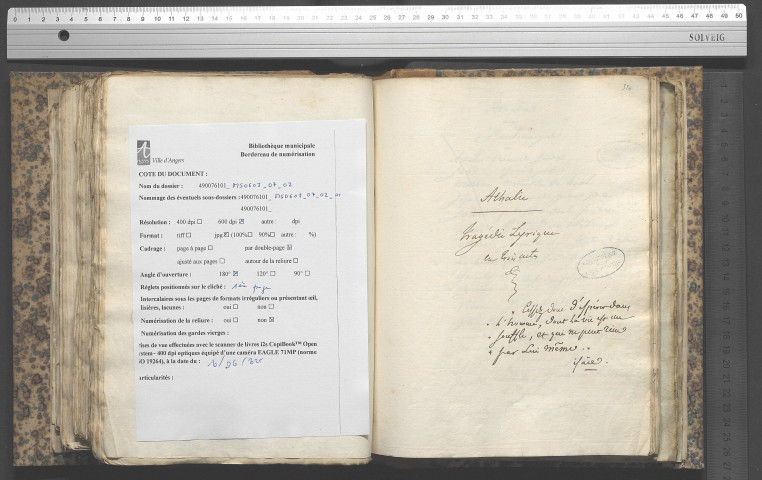 SOLVEIG
Ville d'Angers
Bibliothèque municipale
Bordereau de numérisation
COTE DU DOCUMENT :
Nom du dossier : 490076101_ MS0603_07_02
Nommage des éventuels sous-dossiers : 490076101_ MS0603_07_02_01
490076101_
Résolution : 400 dpi ☐ 600 dpi ☒ autre : dpi
Format : tiff ☐ jpg ☒ (100% ☐ 90% ☐ autre : %)
Cadrage : page à page ☐ par double-page ☒
ajusté aux pages ☐ autour de la reliure ☐
Angle d'ouverture : 180° ☒ 120° ☐ 90° ☐
Réglets positionnés sur le cliché : 1ère page
Intercalaires sous les pages de formats irréguliers ou présentant œil,
lisières, lacunes : oui ☐ non ☐
Numérisation de la reliure : oui ☐ non ☒
Numérisation des gardes vierges :
ises de vue effectuées avec le scanner de livres i2s CopiBook™ Open
stem– 400 dpi optiques équipé d'une caméra EAGLE 71MP (norme
O 19264), à la date du :
articularités :
Athalie
Tragedie Lyrique
en trois acts
" Cessez donc d'espérer dans
" l'homme, dont la vie est un
" souffle, et qui ne peut rien
" par lui même. "
isaïe.